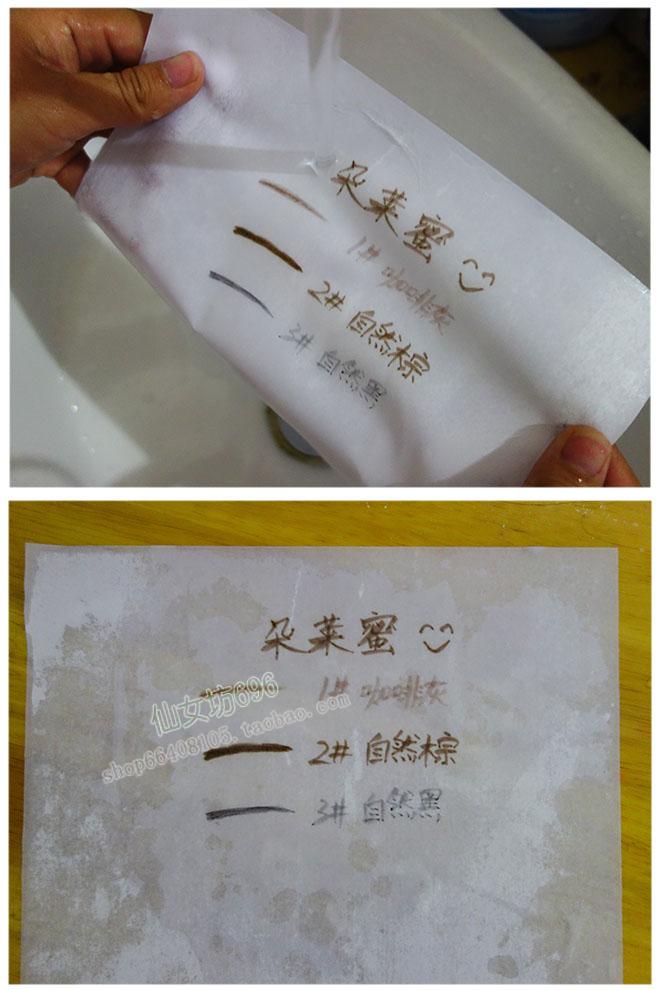 朵莱蜜
1# 咖啡灰
2# 自然棕
3# 自然黑
朵莱蜜
1# 咖啡灰
仙女坊696
shop66408105.taobao.com
2# 自然棕
3# 自然黑